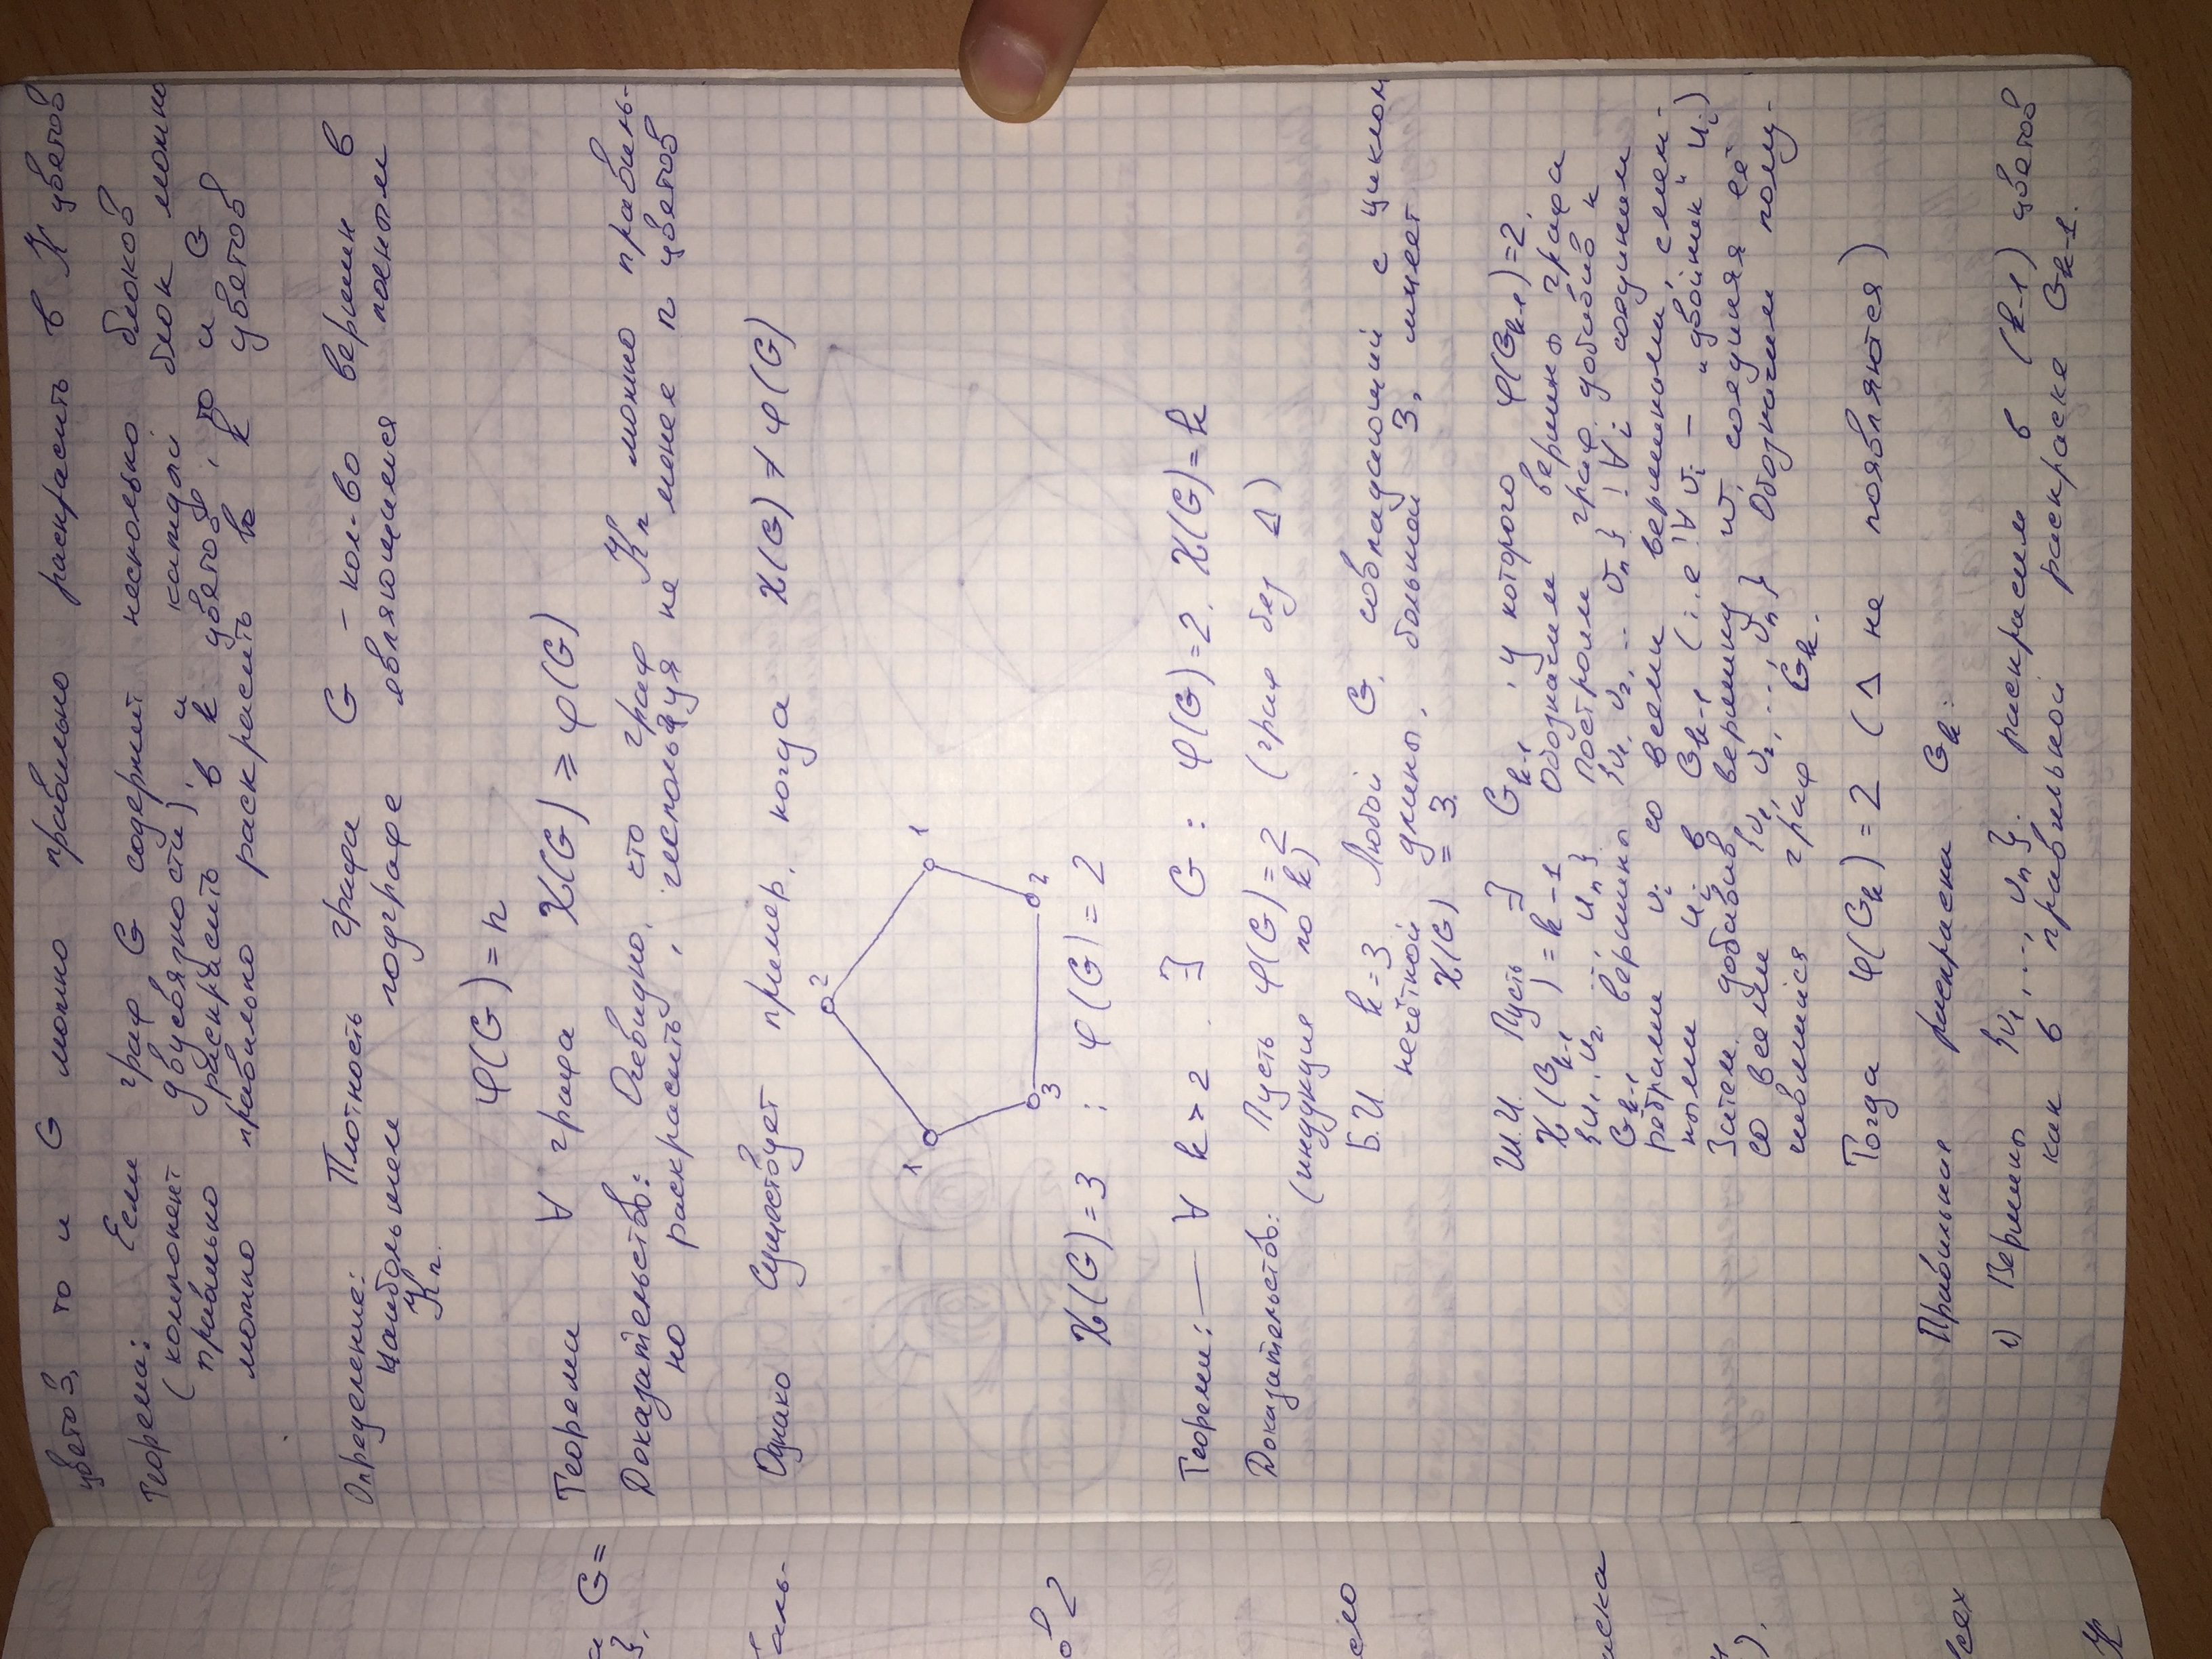 цветов, то и G можно правильно раскрасить в K цветов
Теорема: Если граф G содержит несколько блоков
(компонент двусвязности), и каждый блок можно
правильно раскрасить в k цветов, то и G
можно правильно раскрасить в k цветов
Определение: Плотность графа G – кол-во вершин в
наибольшем подграфе являющимся полным
Kn.
φ(G) = n
Теорема ∀ графа χ(G) ⩾ φ(G)
Доказательство: Очевидно, что граф Kn можно правиль-
но раскрасить, используя не менее n цветов
Однако существует пример, когда χ(G) ≠ φ(G)
2
1 1
3 2
χ(G) = 3 ; φ(G) = 2
Теорема: — ∀ k > 2. ∃ G : φ(G) = 2, χ(G) = k
Доказательство: Пусть φ(G) = 2 (граф без Δ)
(индукция по k)
Б.И k = 3 Любой G, совпадающий с циклом
нечётной длины, большей 3, имеет
χ(G) = 3.
Ш.И. Пусть ∃ Gk-1, у которого φ(Gk-1) = 2,
χ(Gk-1) = k-1 Обозначим вершины графа
{u1, u2, ..., un} построим граф, добавив к
Gk-1 вершины {v1, v2, .. vn} ! ∀i соединим
рёбрами vi со всеми вершинами, смеж-
ными ui в Gk-1 (i.e !∀ vi – „двойник" ui)
Затем, добавив, вершину w, соединяя её
со всеми {v1, v2, ..., vn} Обозначим полу-
чившийся граф Gk.
Тогда φ(Gk) = 2 (Δ не появляются)
Правильная раскраска Gk:
1) Вершины {v1, ..., vn}. раскрасим в (k-1) цветов
как в правильной раскраске Gk-1.
а G=
}.
аль-
2
ело
иска
).
всех
K